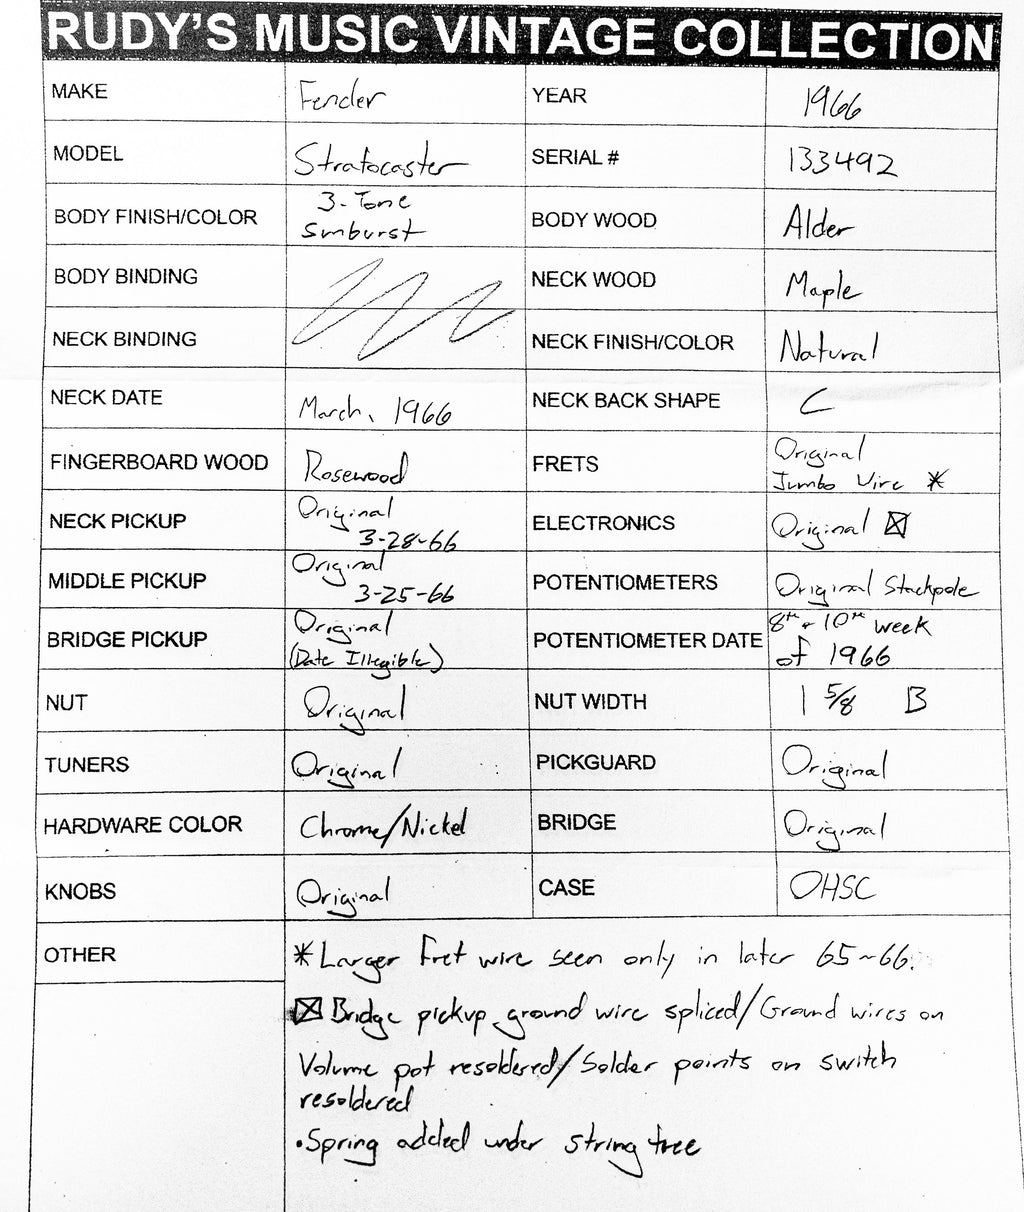 RUDY'S MUSIC VINTAGE COLLECTION
MAKE Fender YEAR 1966
MODEL Stratocaster SERIAL # 133492
BODY FINISH/COLOR 3-Tone Sunburst BODY WOOD Alder
BODY BINDING NECK WOOD Maple
NECK BINDING NECK FINISH/COLOR Natural
NECK DATE March, 1966 NECK BACK SHAPE C
FINGERBOARD WOOD Rosewood FRETS Original Jumbo Wire *
NECK PICKUP Original 3-28-66 ELECTRONICS Original ☒
MIDDLE PICKUP Original 3-25-66 POTENTIOMETERS Original Stackpole
BRIDGE PICKUP Original (Date Illegible) POTENTIOMETER DATE 8th + 10th week of 1966
NUT Original NUT WIDTH 1 5/8 B
TUNERS Original PICKGUARD Original
HARDWARE COLOR Chrome/Nickel BRIDGE Original
KNOBS Original CASE OHSC
OTHER * Larger Fret wire seen only in later 65~66.
☒ Bridge pickup ground wire spliced/Ground wires on
Volume pot resoldered/Solder points on switch
resoldered
• Spring added under string tree